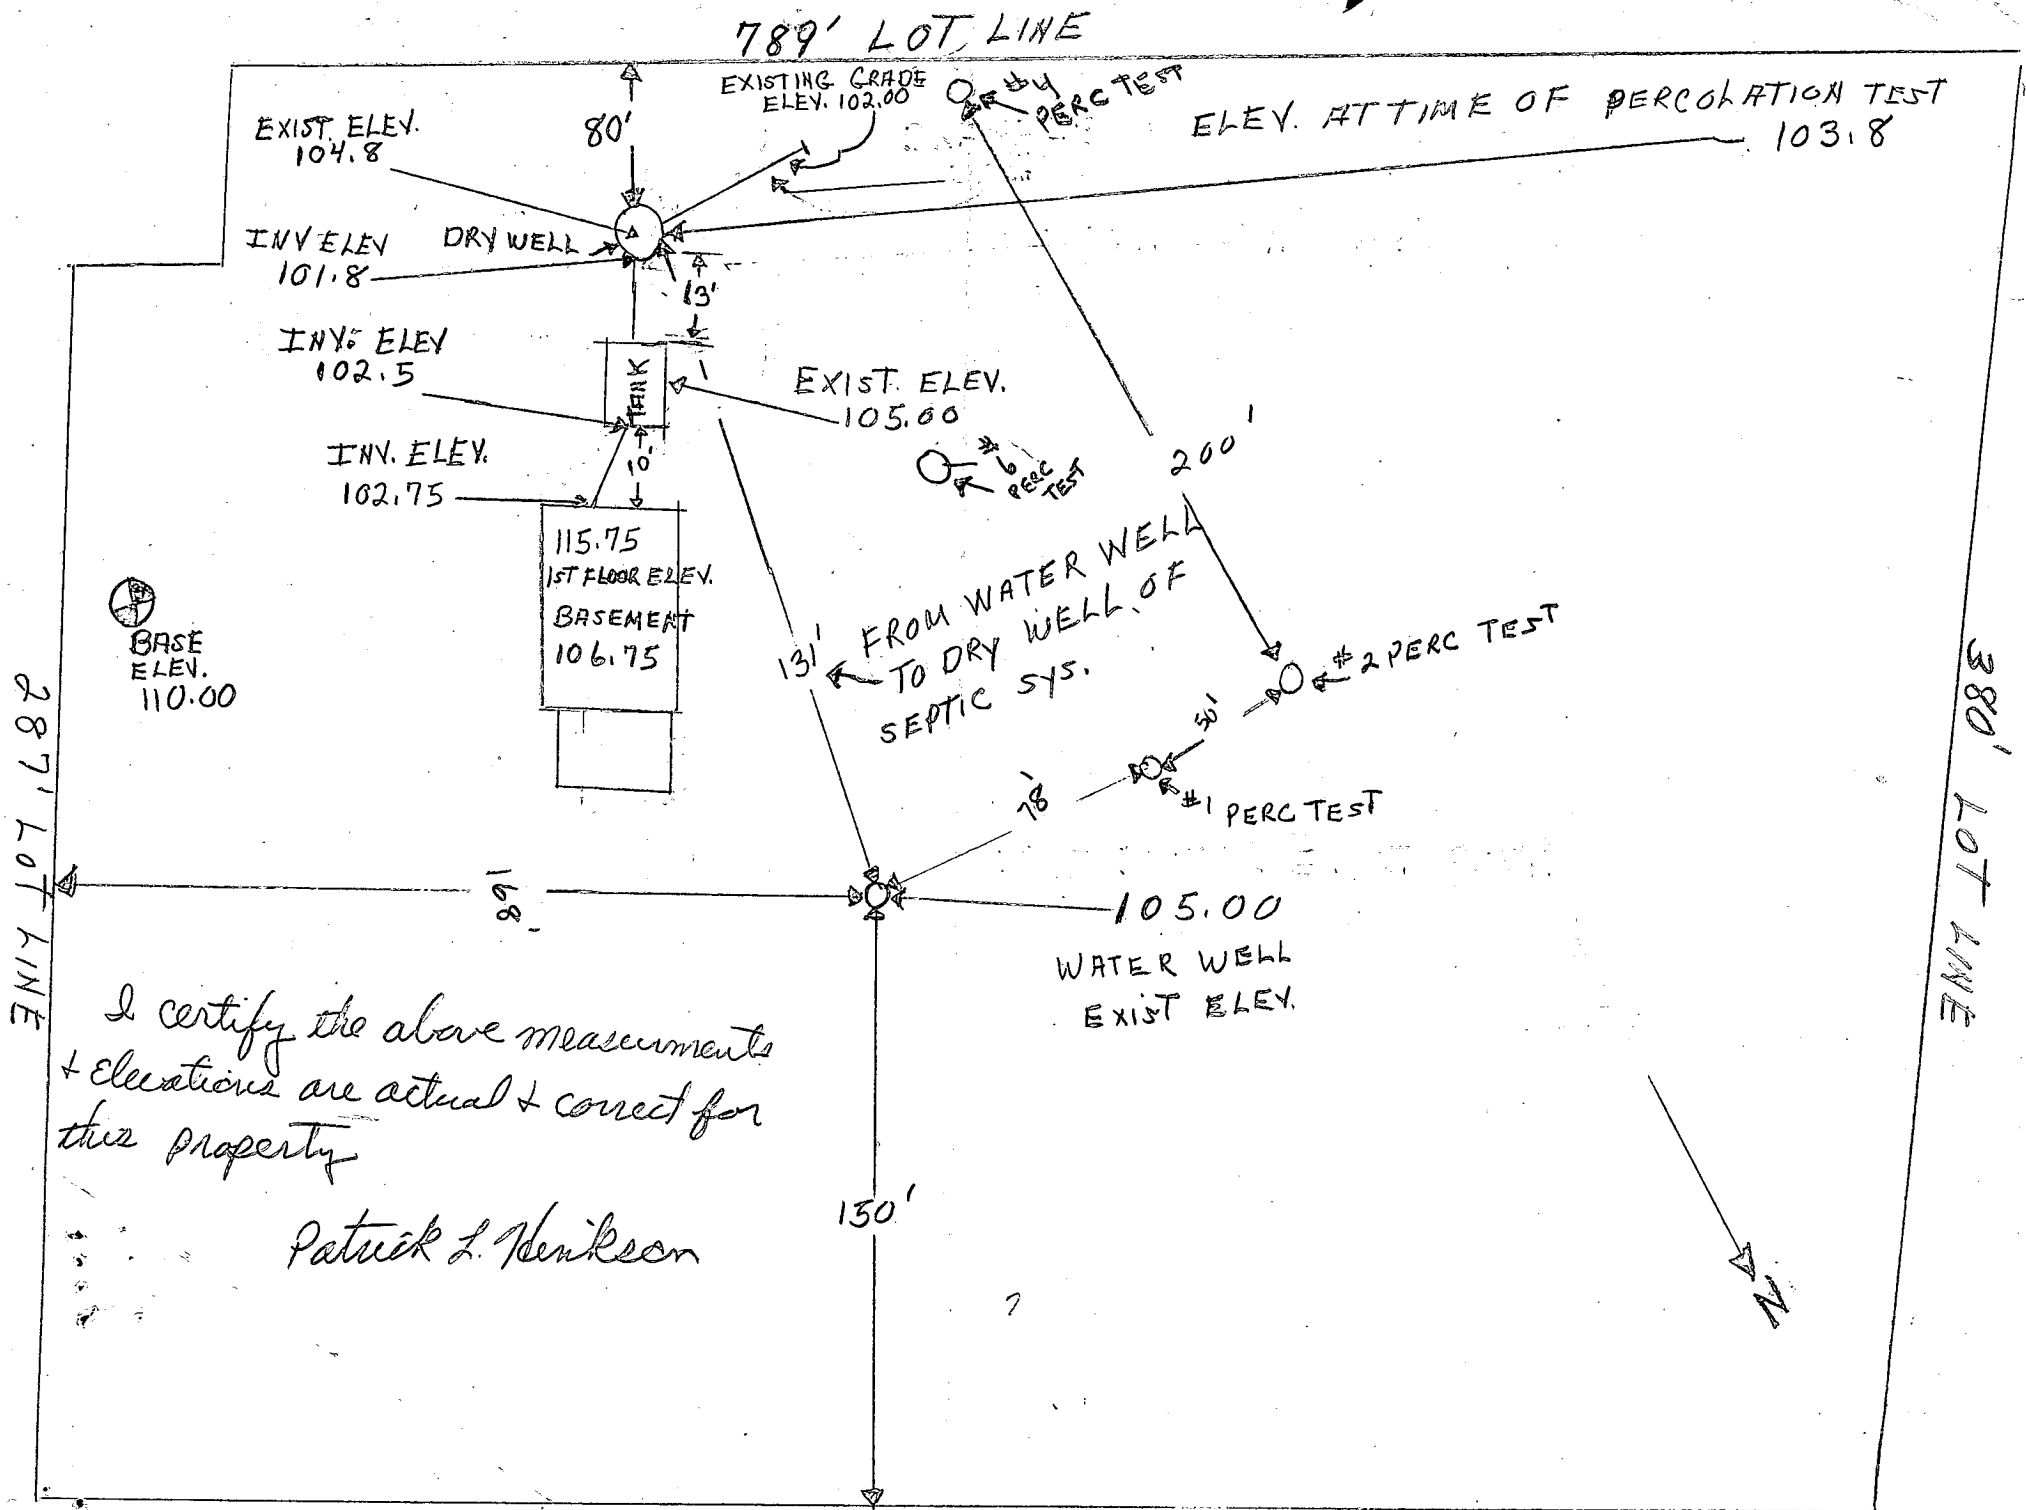 789' LOT LINE
EXISTING GRADE
ELEV. 102.00
#4
PERC TEST
ELEV. AT TIME OF PERCOLATION TEST
103.8
EXIST. ELEV.
104.8
80'
INV ELEV
101.8
DRY WELL
13'
INV. ELEV
102.5
TANK
EXIST. ELEV.
105.00
INV. ELEV.
102.75
10'
#6
PERC
TEST
200'
115.75
1ST FLOOR ELEV.
BASEMENT
106.75
BASE
ELEV.
110.00
131'
FROM WATER WELL
TO DRY WELL OF
SEPTIC SYS.
#2 PERC TEST
50'
78'
#1 PERC TEST
287' LOT LINE
380' LOT LINE
105.00
WATER WELL
EXIST ELEV.
I certify the above measurments
+ Elevations are actual + correct for
this property
Patrick L. Henikson
150'
N